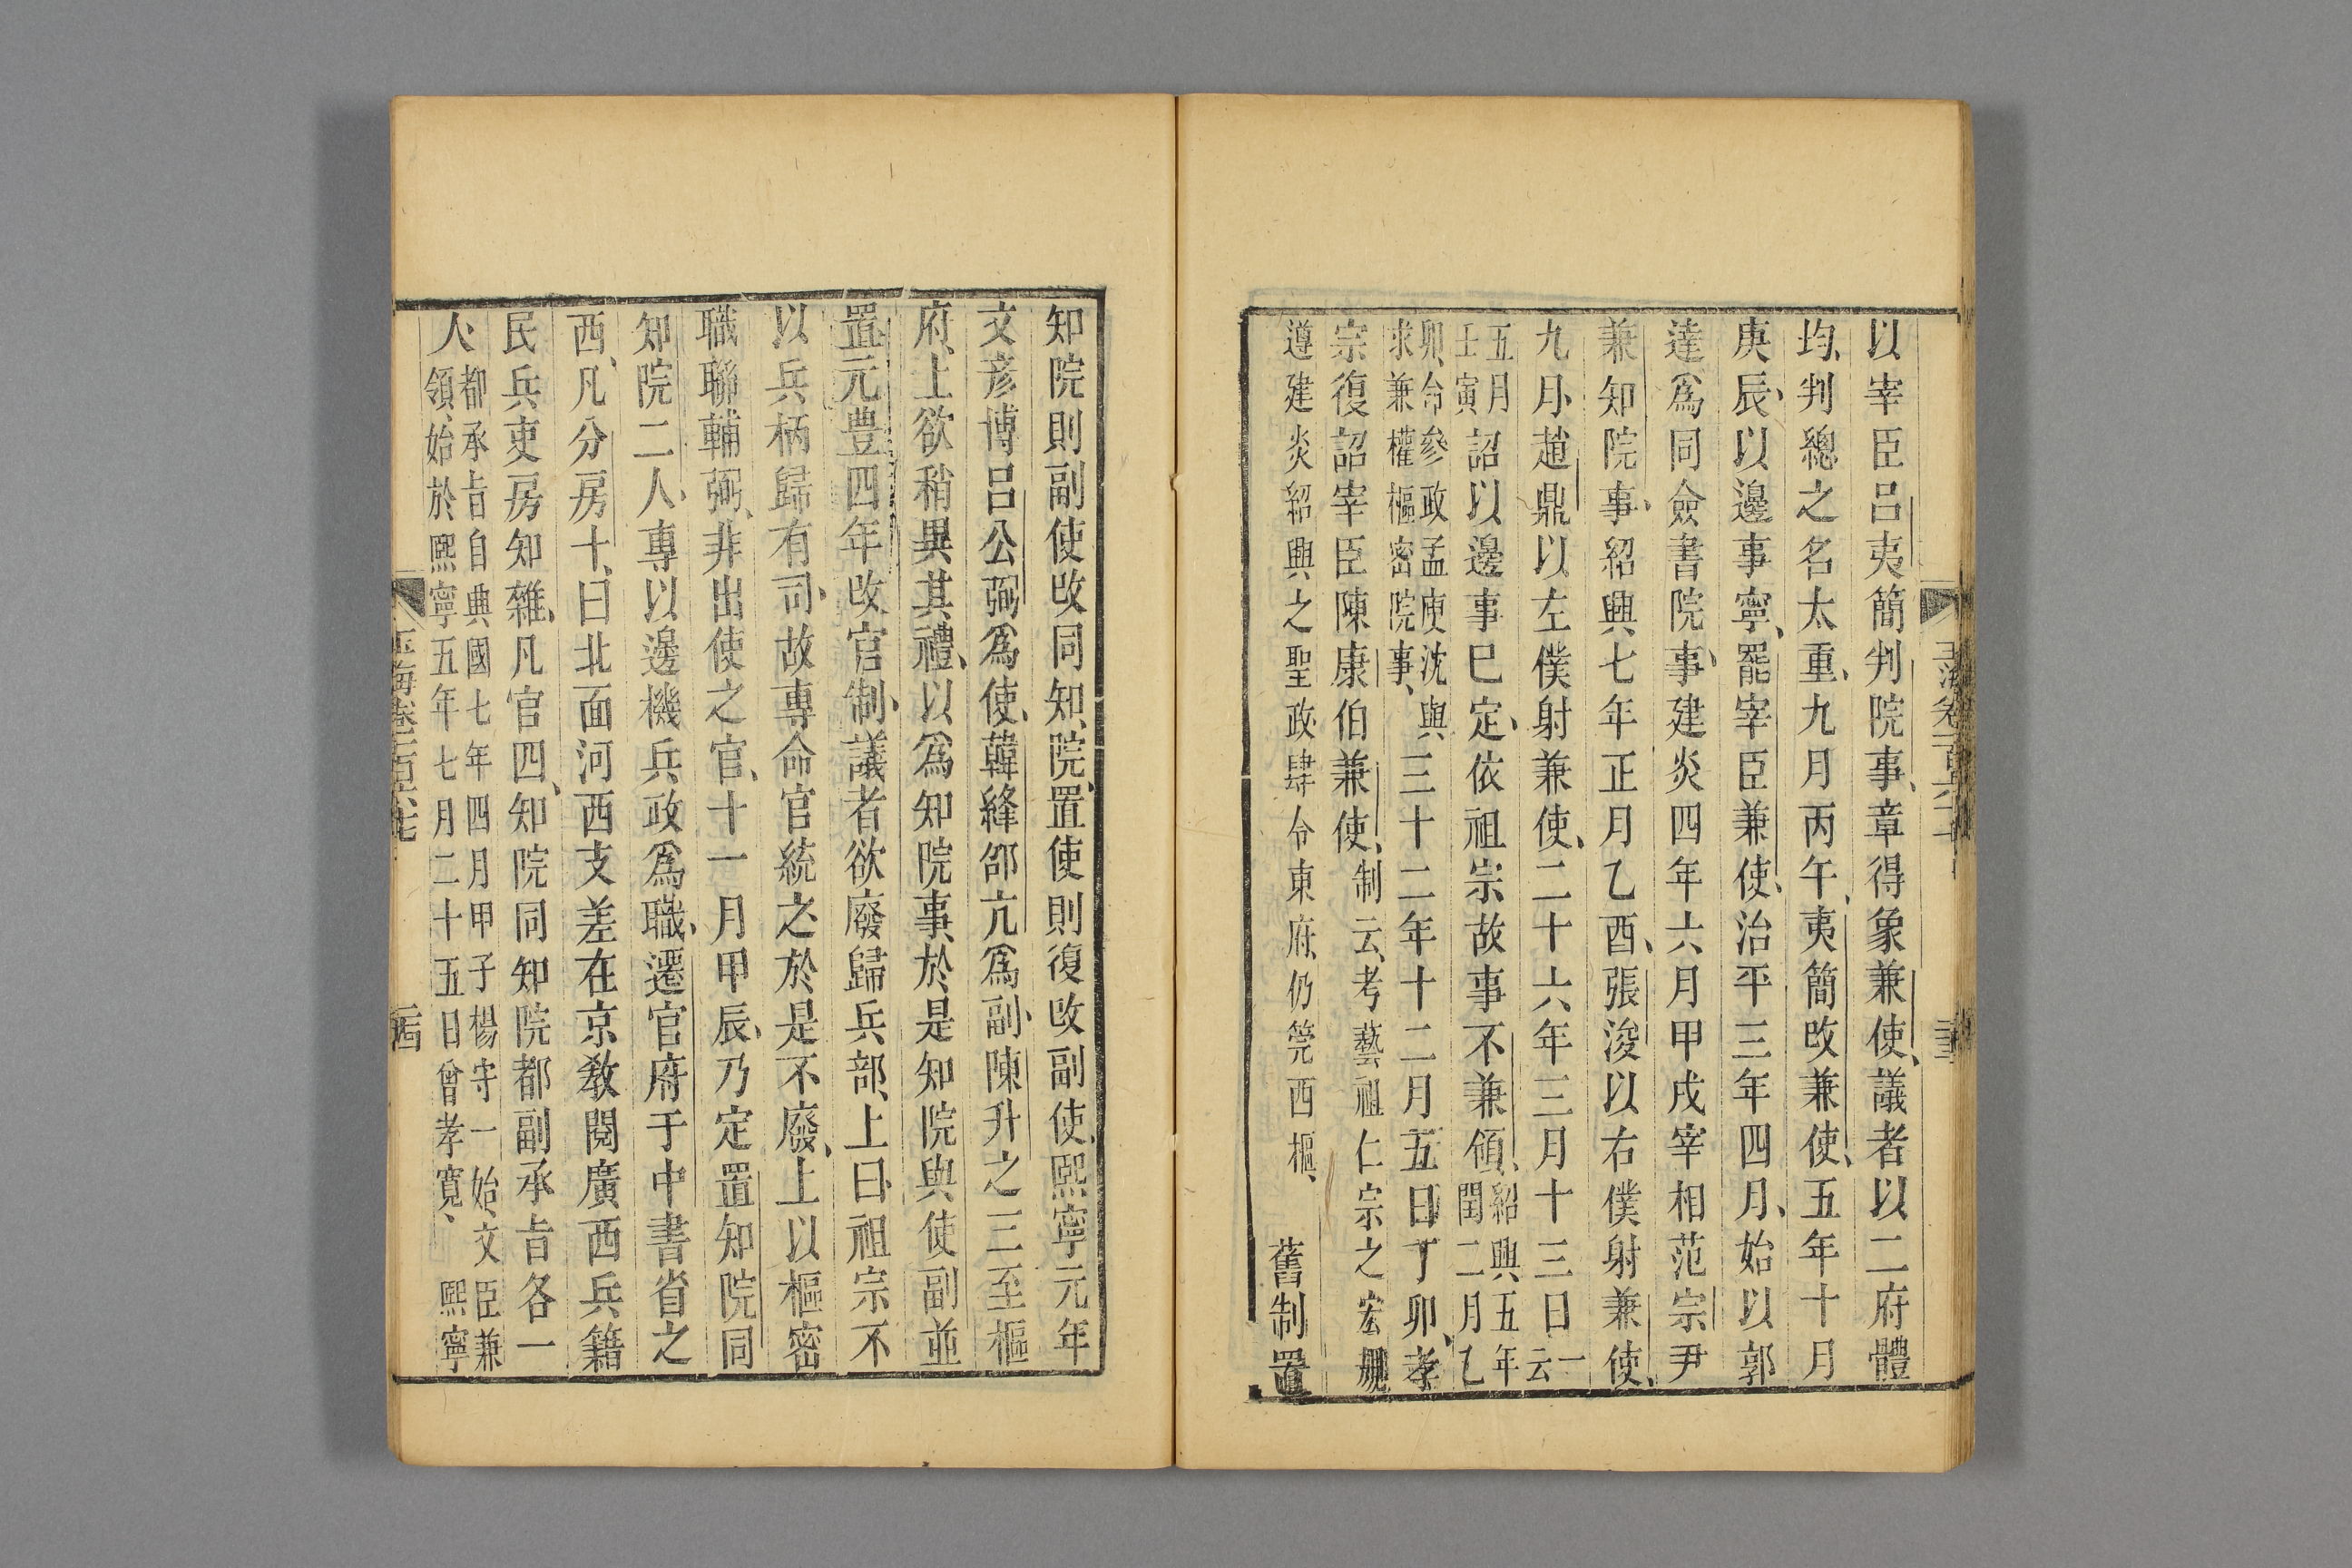 以宰臣呂夷簡判院事、章得象兼使、議者以二府體
均、判總之名太重、九月丙午、夷簡改兼使、五年十月
庚辰、以邊事寧、罷宰臣兼使、治平三年四月、始以郭
逵爲同僉書院事、建炎四年六月甲戌宰相范宗尹
兼知院事、紹興七年正月乙酉、張浚以右僕射兼使、
九月、趙鼎以左僕射兼使、二十六年三月十三日一云
五月壬寅詔以邊事已定、依祖宗故事不兼領、紹興五年閏二月乙
卯、命參政孟庾沈與求兼權樞密院事、三十二年十二月五日丁卯、孝
宗復詔宰臣陳康伯兼使、制云、考藝祖仁宗之宏規
遵建炎紹興之聖政、肆令東府、仍筦西樞、舊制置
玉海卷一百六十七
知院則副使改同知、院置使則復改副使、熙寧元年
文彥博呂公弼爲使、韓絳邵亢爲副、陳升之三至樞
府、上欲稍異其禮、以爲知院事、於是知院與使副並
置元豊四年改官制、議者欲廢歸兵部、上曰、祖宗不
以兵柄歸有司、故專命官統之、於是不廢、上以樞密
職聯輔弼、非出使之官、十一月甲辰、乃定置知院同
知院二人、專以邊機兵政爲職、遷官府于中書省之
西、凡分房十、曰北面河西支差在京敎閱廣西兵籍
民兵吏房知雜、凡官四、知院同知院都副承旨各一
人、都承旨自典國七年四月甲子楊守一始、文臣兼領、始於熙寧五年七月二十五日曾孝寬、熙寧
玉海卷一百六十七